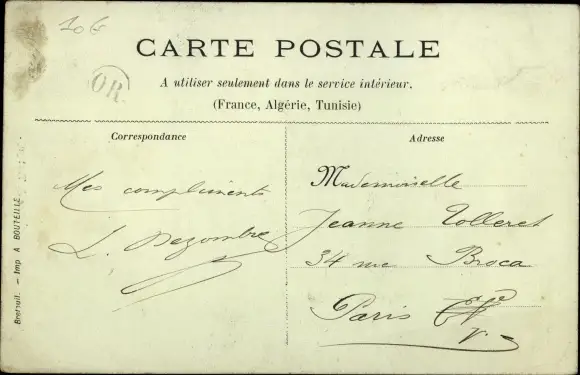 10 G
OR
CARTE POSTALE
A utiliser seulement dans le service intérieur.
(France, Algérie, Tunisie)
Correspondance
Adresse
Mes compliments
L. Dezombre
Mademoiselle
Jeanne Tolleret
34 rue Broca
Paris
V.
Breteuil. — Imp A BOUTEILLE.